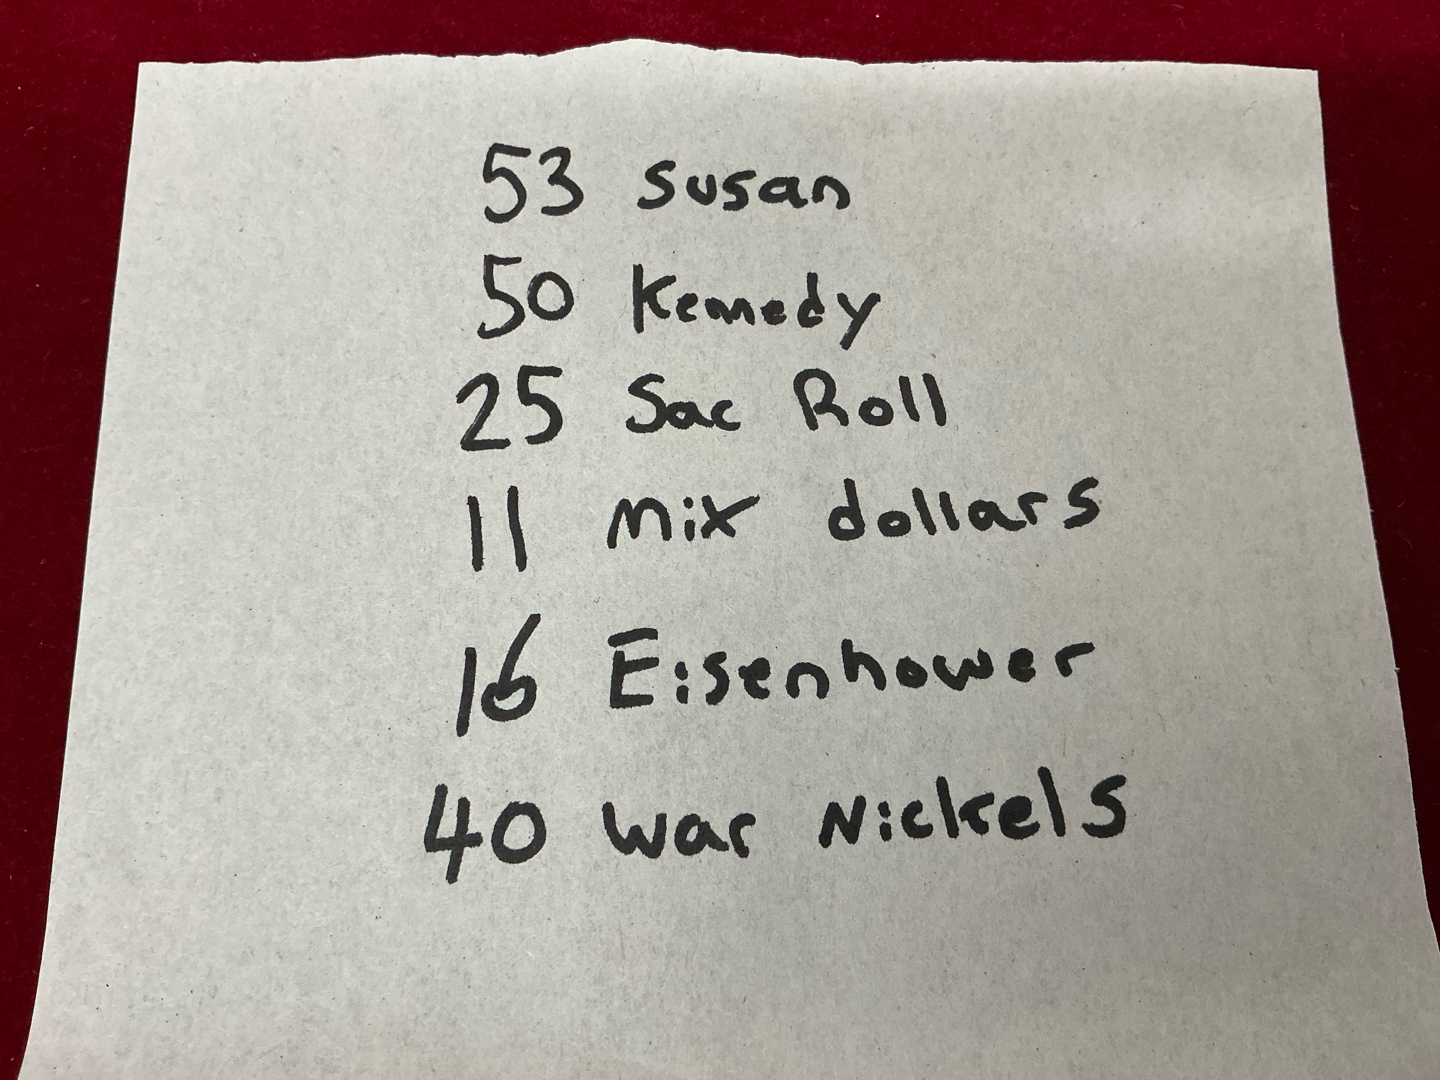 53 Susan
50 Kemedy
25 Sac Roll
11 Mix dollars
16 Eisenhower
40 War Nickels